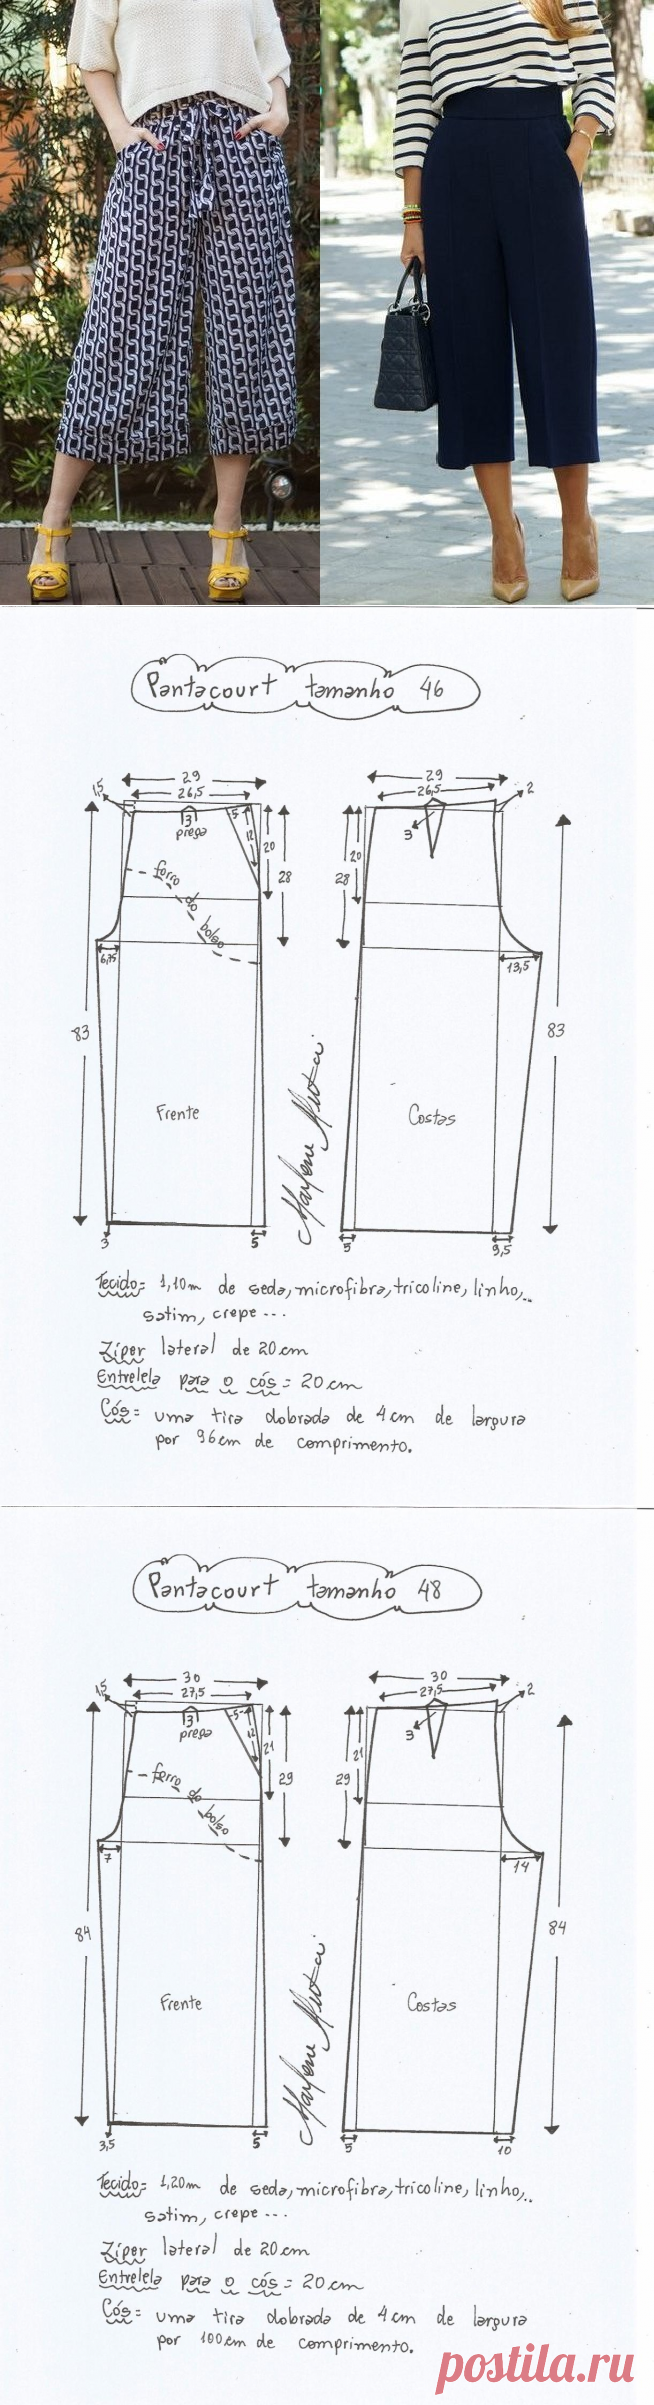 Pantacourt tamanho 46
29
26,5
1,5
3
prega
5
12
20
28
forro do bolso
6,75
83
Frente
3
5
29
26,5
2
3
20
28
13,5
83
Costas
5
9,5
Marlene Mukai
Tecido= 1,10m de seda, microfibra, tricoline, linho,..
satim, crepe ...
Zíper lateral de 20cm
Entretela para o cós = 20cm
Cós = uma tira dobrada de 4cm de largura
por 96cm de comprimento.
Pantacourt tamanho 48
30
27,5
1,5
3
prega
5
12
21
29
forro do bolso
7
84
Frente
3,5
5
30
27,5
2
3
21
29
14
84
Costas
5
10
Marlene Mukai
Tecido= 1,20m de seda, microfibra, tricoline, linho,..
satim, crepe ...
Zíper lateral de 20cm
Entretela para o cós = 20cm
Cós = uma tira dobrada de 4cm de largura
por 100cm de comprimento.
postila.ru